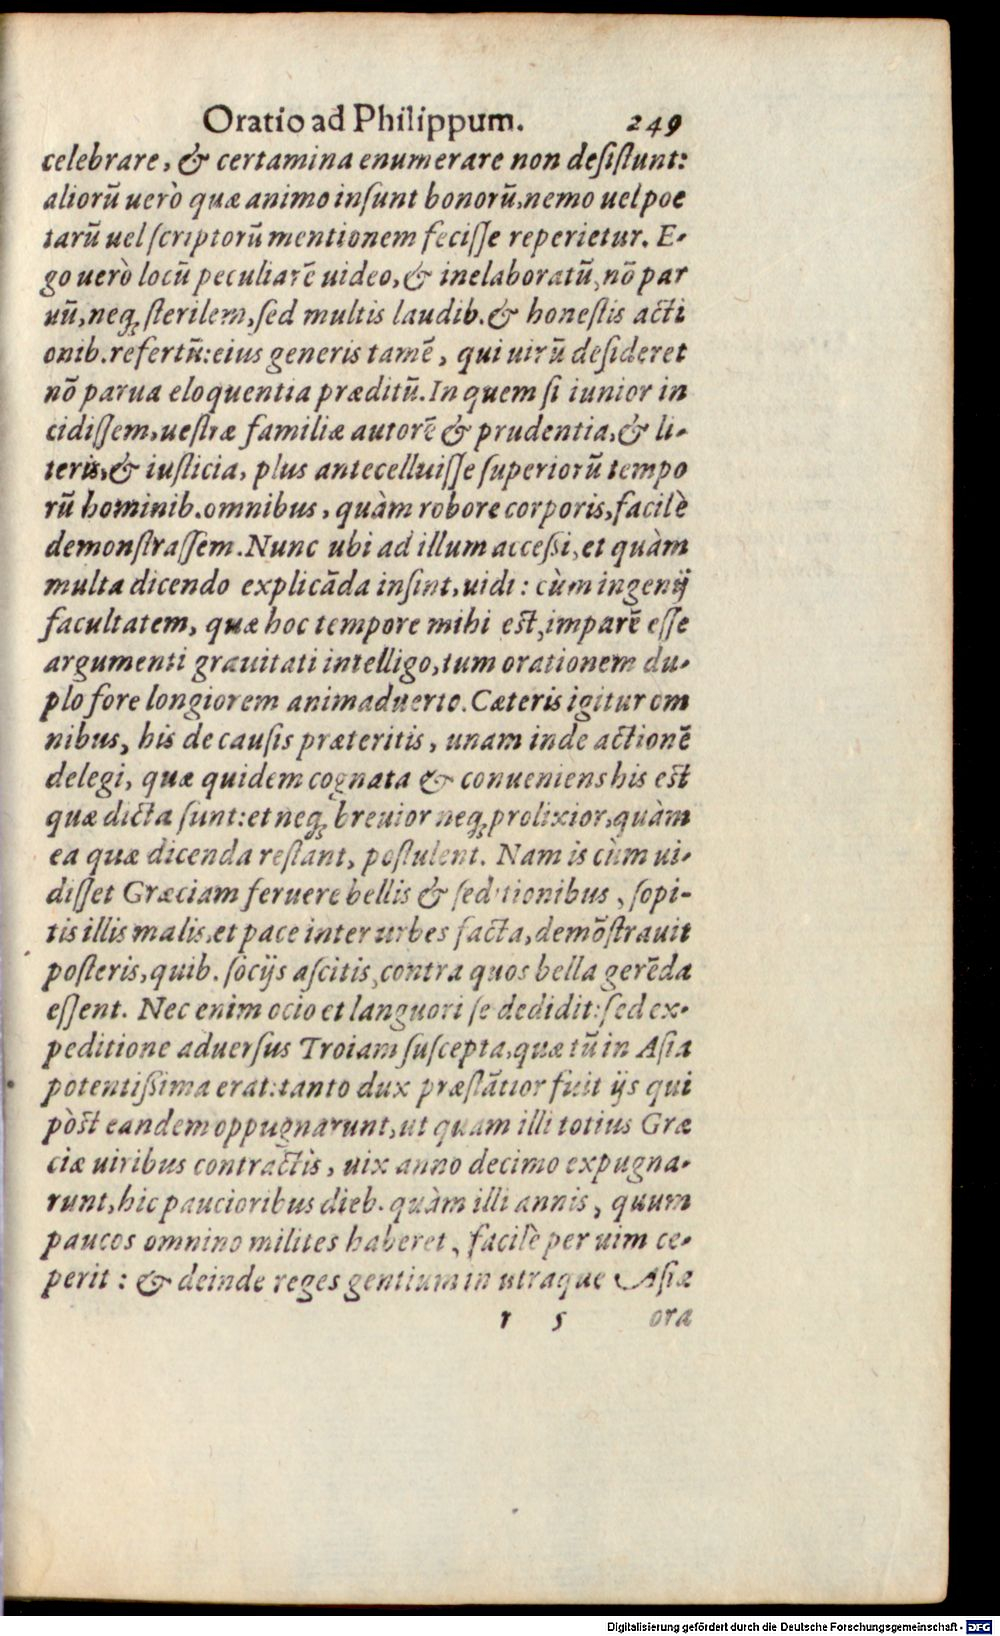 Oratio ad Philippum. 249
celebrare, & certamina enumerare non desistunt:
aliorũ uerò quæ animo insunt bonorũ, nemo uel poe
tarũ uel scriptorũ mentionem fecisse reperietur. E-
go uerò locũ peculiarẽ uideo, & inelaboratũ, nõ par
uũ, neq; sterilem, sed multis laudib. & honestis acti
onib. refertũ: eius generis tamẽ, qui uirũ desideret
nõ parua eloquentia præditũ. In quem si iunior in
cidissem, uestræ familiæ autorẽ & prudentia, & li-
teris, & iusticia, plus antecelluisse superiorũ tempo
rũ hominib. omnibus, quàm robore corporis, facilè
demonstrassem. Nunc ubi ad illum accessi, et quàm
multa dicendo explicãda insint, uidi: cùm ingenij
facultatem, quæ hoc tempore mihi est, imparẽ esse
argumenti grauitati intelligo, tum orationem du-
plo fore longiorem animaduerto. Cæteris igitur om
nibus, his de causis præteritis, unam inde actionẽ
delegi, quæ quidem cognata & conueniens his est
quæ dicta sunt: et neq; breuior neq; prolixior, quàm
ea quæ dicenda restant, postulent. Nam is cùm ui-
disset Græciam feruere bellis & seditionibus, sopi-
tis illis malis, et pace inter urbes facta, demõstrauit
posteris, quib. socijs ascitis, contra quos bella gerẽda
essent. Nec enim ocio et languori se dedidit: sed ex-
peditione aduersus Troiam suscepta, quæ tũ in Asia
potentissima erat: tanto dux præstãtior fuit ijs qui
pòst eandem oppugnarunt, ut quam illi totius Græ
ciæ uiribus contractis, uix anno decimo expugna-
runt, hic paucioribus dieb. quàm illi annis, quum
paucos omnino milites haberet, facilè per uim ce-
perit: & deinde reges gentium in utraque Asiæ
r 5 ora
Digitalisierung gefördert durch die Deutsche Forschungsgemeinschaft - DFG